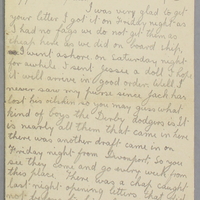 I was very glad to get
your letter I got it on Friday night as
I had no fags we do not get them so
cheap here as we did on board ship.
I went ashore on Saturday night
for awhile I sent Jessie a doll I hope
it well arrive in good order. Well I
never saw my purse since Jack has
lost his so you may guess what
kind of boys the Derby Dodgers is
is nearly all them that came in here
there was another draft came in on
Friday night from Devonport, So you
see they come and go every week from
this place. There was a chap caught
last night opening letters that did
not belong